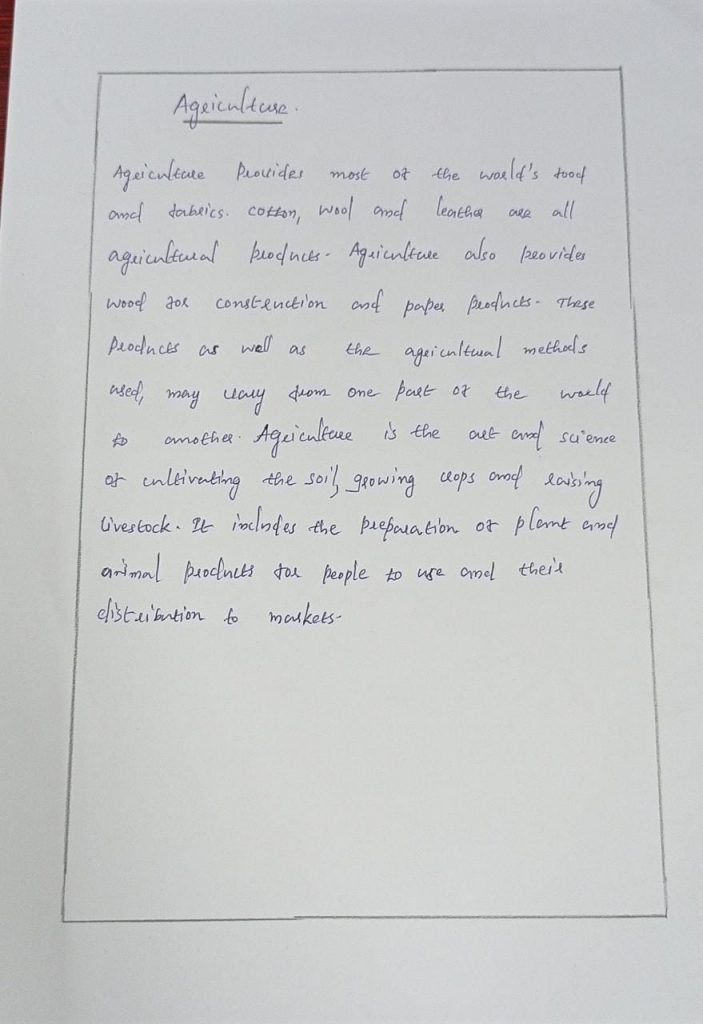 Agriculture.
Agriculture Provides most of the world's food
and fabrics. cotton, wool and leather are all
agricultural products. Agriculture also provides
wood for construction and paper products. These
Products as well as the agricultural methods
used, may vary from one part of the world
to another. Agriculture is the art and science
of cultivating the soil, growing crops and raising
livestock. It includes the preparation of plant and
animal products for people to use and their
distribution to markets.